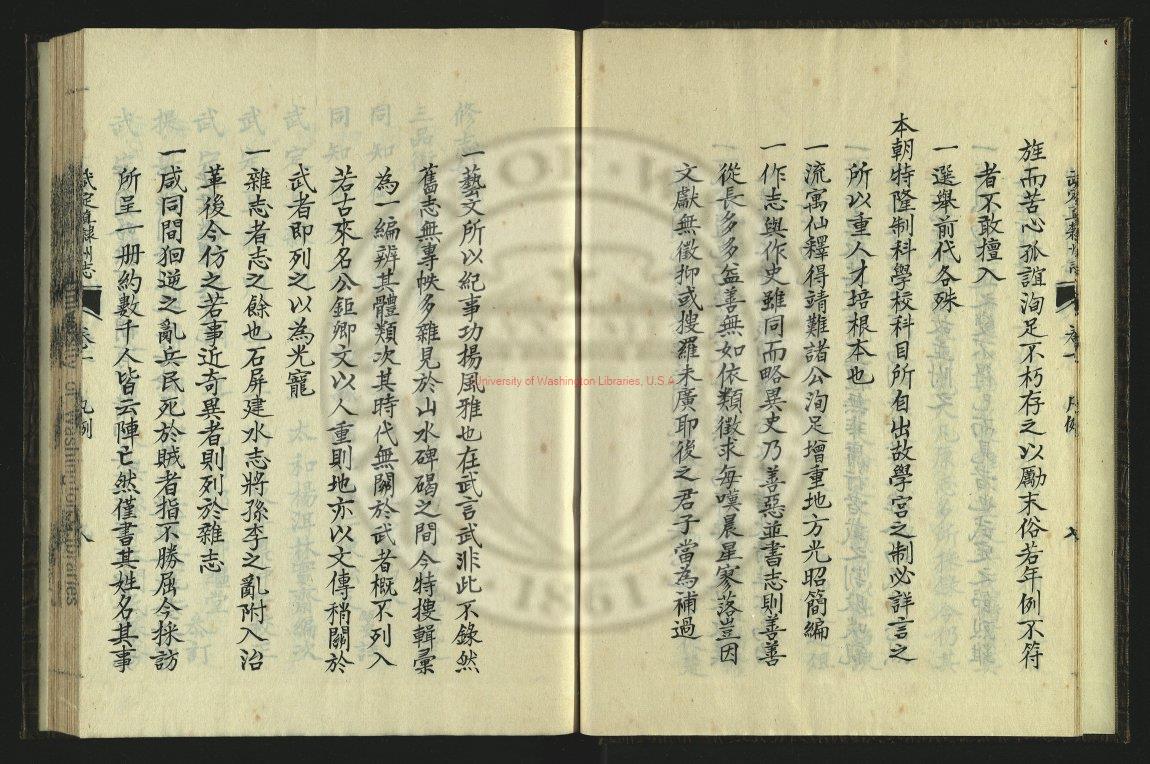 旌而苦心孤誼洵足不朽存之以勵末俗若年例不符
者不敢擅入
一選舉前代各殊
本朝特隆制科學校科目所自出故學宮之制必詳言之
所以重人才培根本也
一流寓仙釋得靖難諸公洵足增重地方光昭簡編
一作志與作史雖同而略異史乃善惡並書志則善善
從長多多益善無如依類徵求每嘆晨星寥落豈因
文獻無徵抑或搜羅未廣耶後之君子當為補過
一藝文所以紀事功揚風雅也在武言武非此不錄然
舊志無專帙多雜見於山水碑碣之間今特搜輯彙
為一編辨其體類次其時代無關於武者概不列入
若古來名公鉅卿文以人重則地亦以文傳稍關於
武者即列之以為光寵
一雜志者志之餘也石屏建水志將孫李之亂附入沿
革後今仿之若事近奇異者則列於雜志
一咸同間狥逆之亂兵民死於賊者指不勝屈今採訪
所呈一册約數千人皆云陣亡然僅書其姓名其事
武定直隸州志 卷一 凡例 八
University of Washington Libraries, U.S.A.
University of Washington Libraries
1861